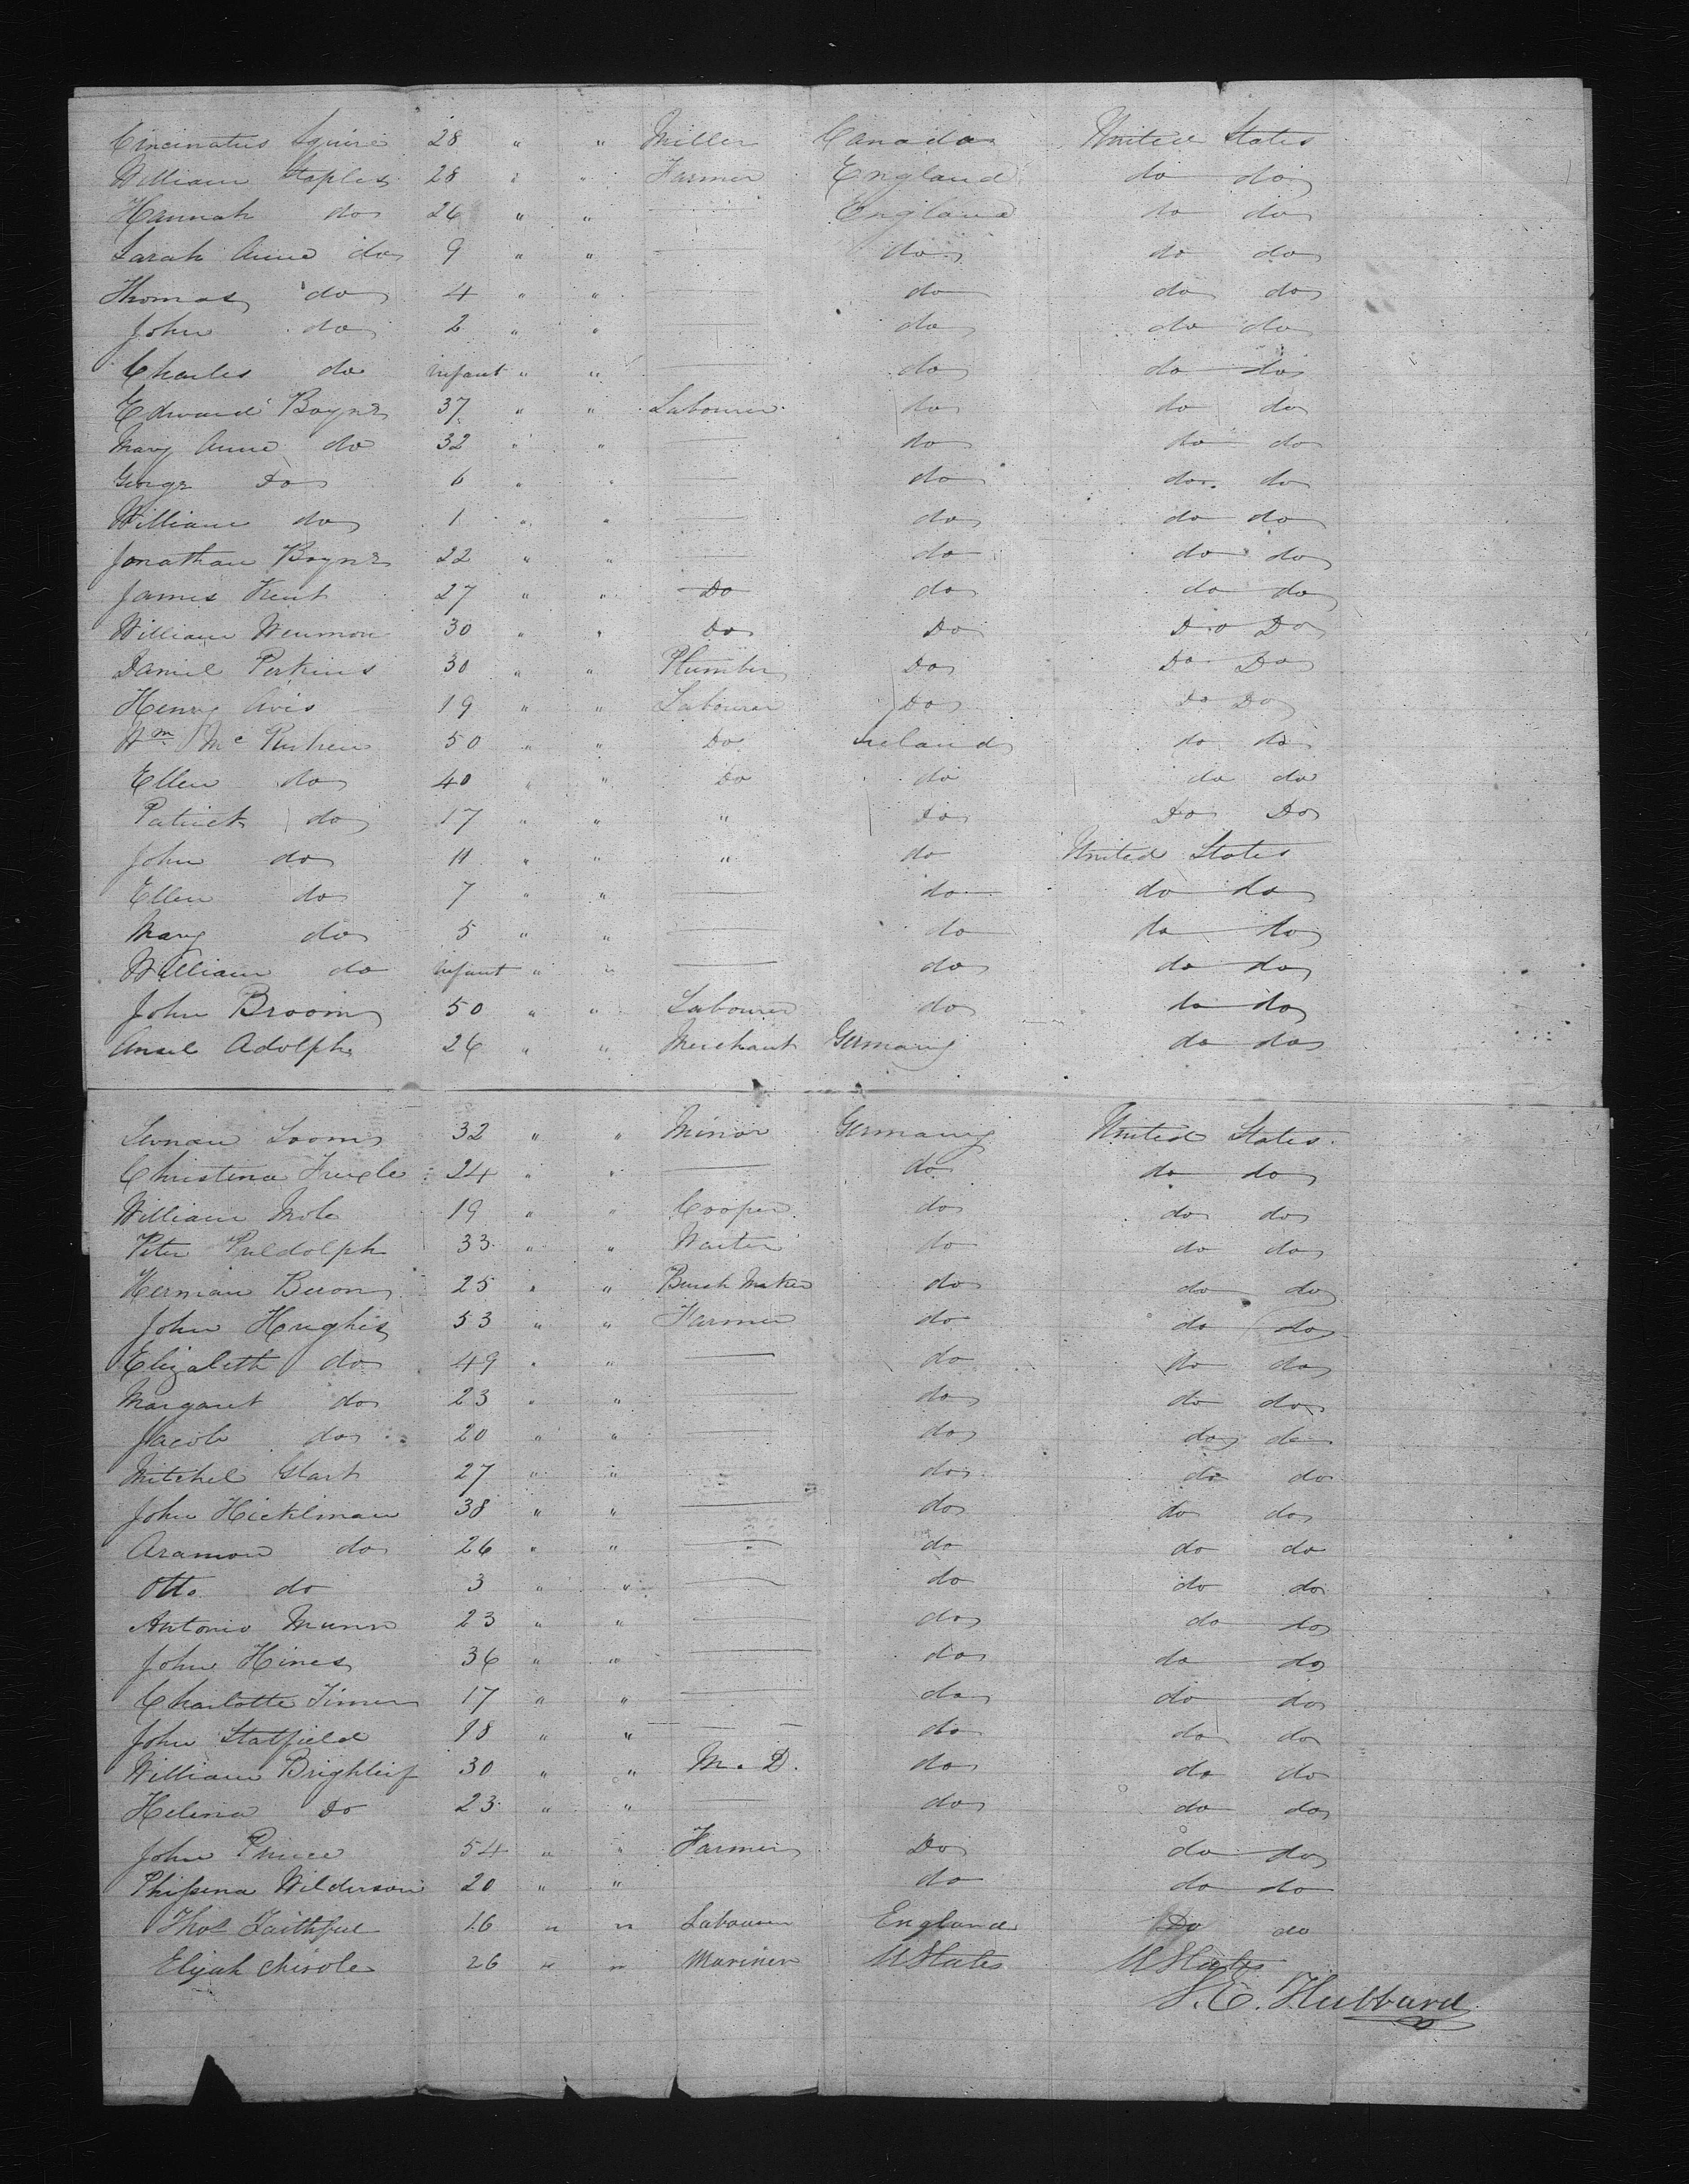 Cincinatus Squire 28 " " Miller Canada United States
William Staples 28 " " Farmer England do do
Hannah do 26 " " — England do do
Sarah Anne do 9 " " — do do do
Thomas do 4 " " — do do do
John do 2 " " — do do do
Charles do Infant " " — do do do
Edward Boyne 37 " " Labourer do do do
Mary Anne do 32 " " — do do do
George Do 6 " " — do do do
William do 1 " " — do do do
Jonathan Boyne 22 " " — do do do
James Trent 27 " " Do do do do
William Wenmon 30 " " Do Do Do Do
Daniel Perkins 30 " " Plumber Do Do Do
Henry Avis 19 " " Labourer Do Do Do
Wm Mc 50 " " Do Ireland do do
Ellen do 40 " " Do do do do
Patrick do 17 " " " Do Do Do
John do 11 " " " do United States
Ellen do 7 " " — do do do
Mary do 5 " " — do do do
William do Infant " " — do do do
John Broom 50 " " Labourer do do do
Ansel Adolph 26 " " Merchant Germany do do
Loom 32 " " Minor Germany United States
Christina 24 " " — do do do
William Mole 19 " " Cooper do do do
Peter Puldolph 33 " " Waiter do do do
Herman Beron 25 " " Brush Maker do do do
John Hughes 53 " " Farmer do do do
Elizabeth do 49 " " — do do do
Margaret do 23 " " — do do do
Jacob do 20 " " — do do do
Mitchel Clark 27 " " do do do
John Hicklman 38 " " — do do do
Aramon do 26 " " — do do do
Otto do 3 " " — do do do
Antonio Munn 23 " " — do do do
John Hines 36 " " — do do do
Charlotte Timer 17 " " — do do do
John Statfield 18 " " — do do do
William Brightleif 30 " " M. D. do do do
Helena Do 23 " " — do do do
John Prince 54 " " Farmer Do do do
Wilderson 20 " " do do do
Thos Faithful 16 " " Labourer England Do do
Elijah 26 " " Mariner U States U States
S. E. Hubbard